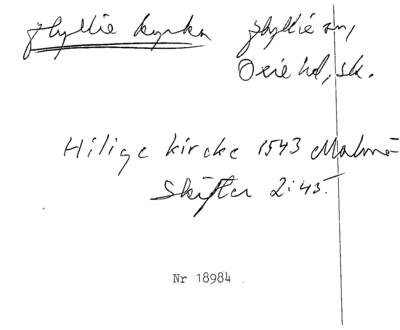 Hyllie kyrka Hyllie sn,
Oxie hd, sk.
Hilige kircke 1543 Malmö
Skifter 2:45.
Nr 18984